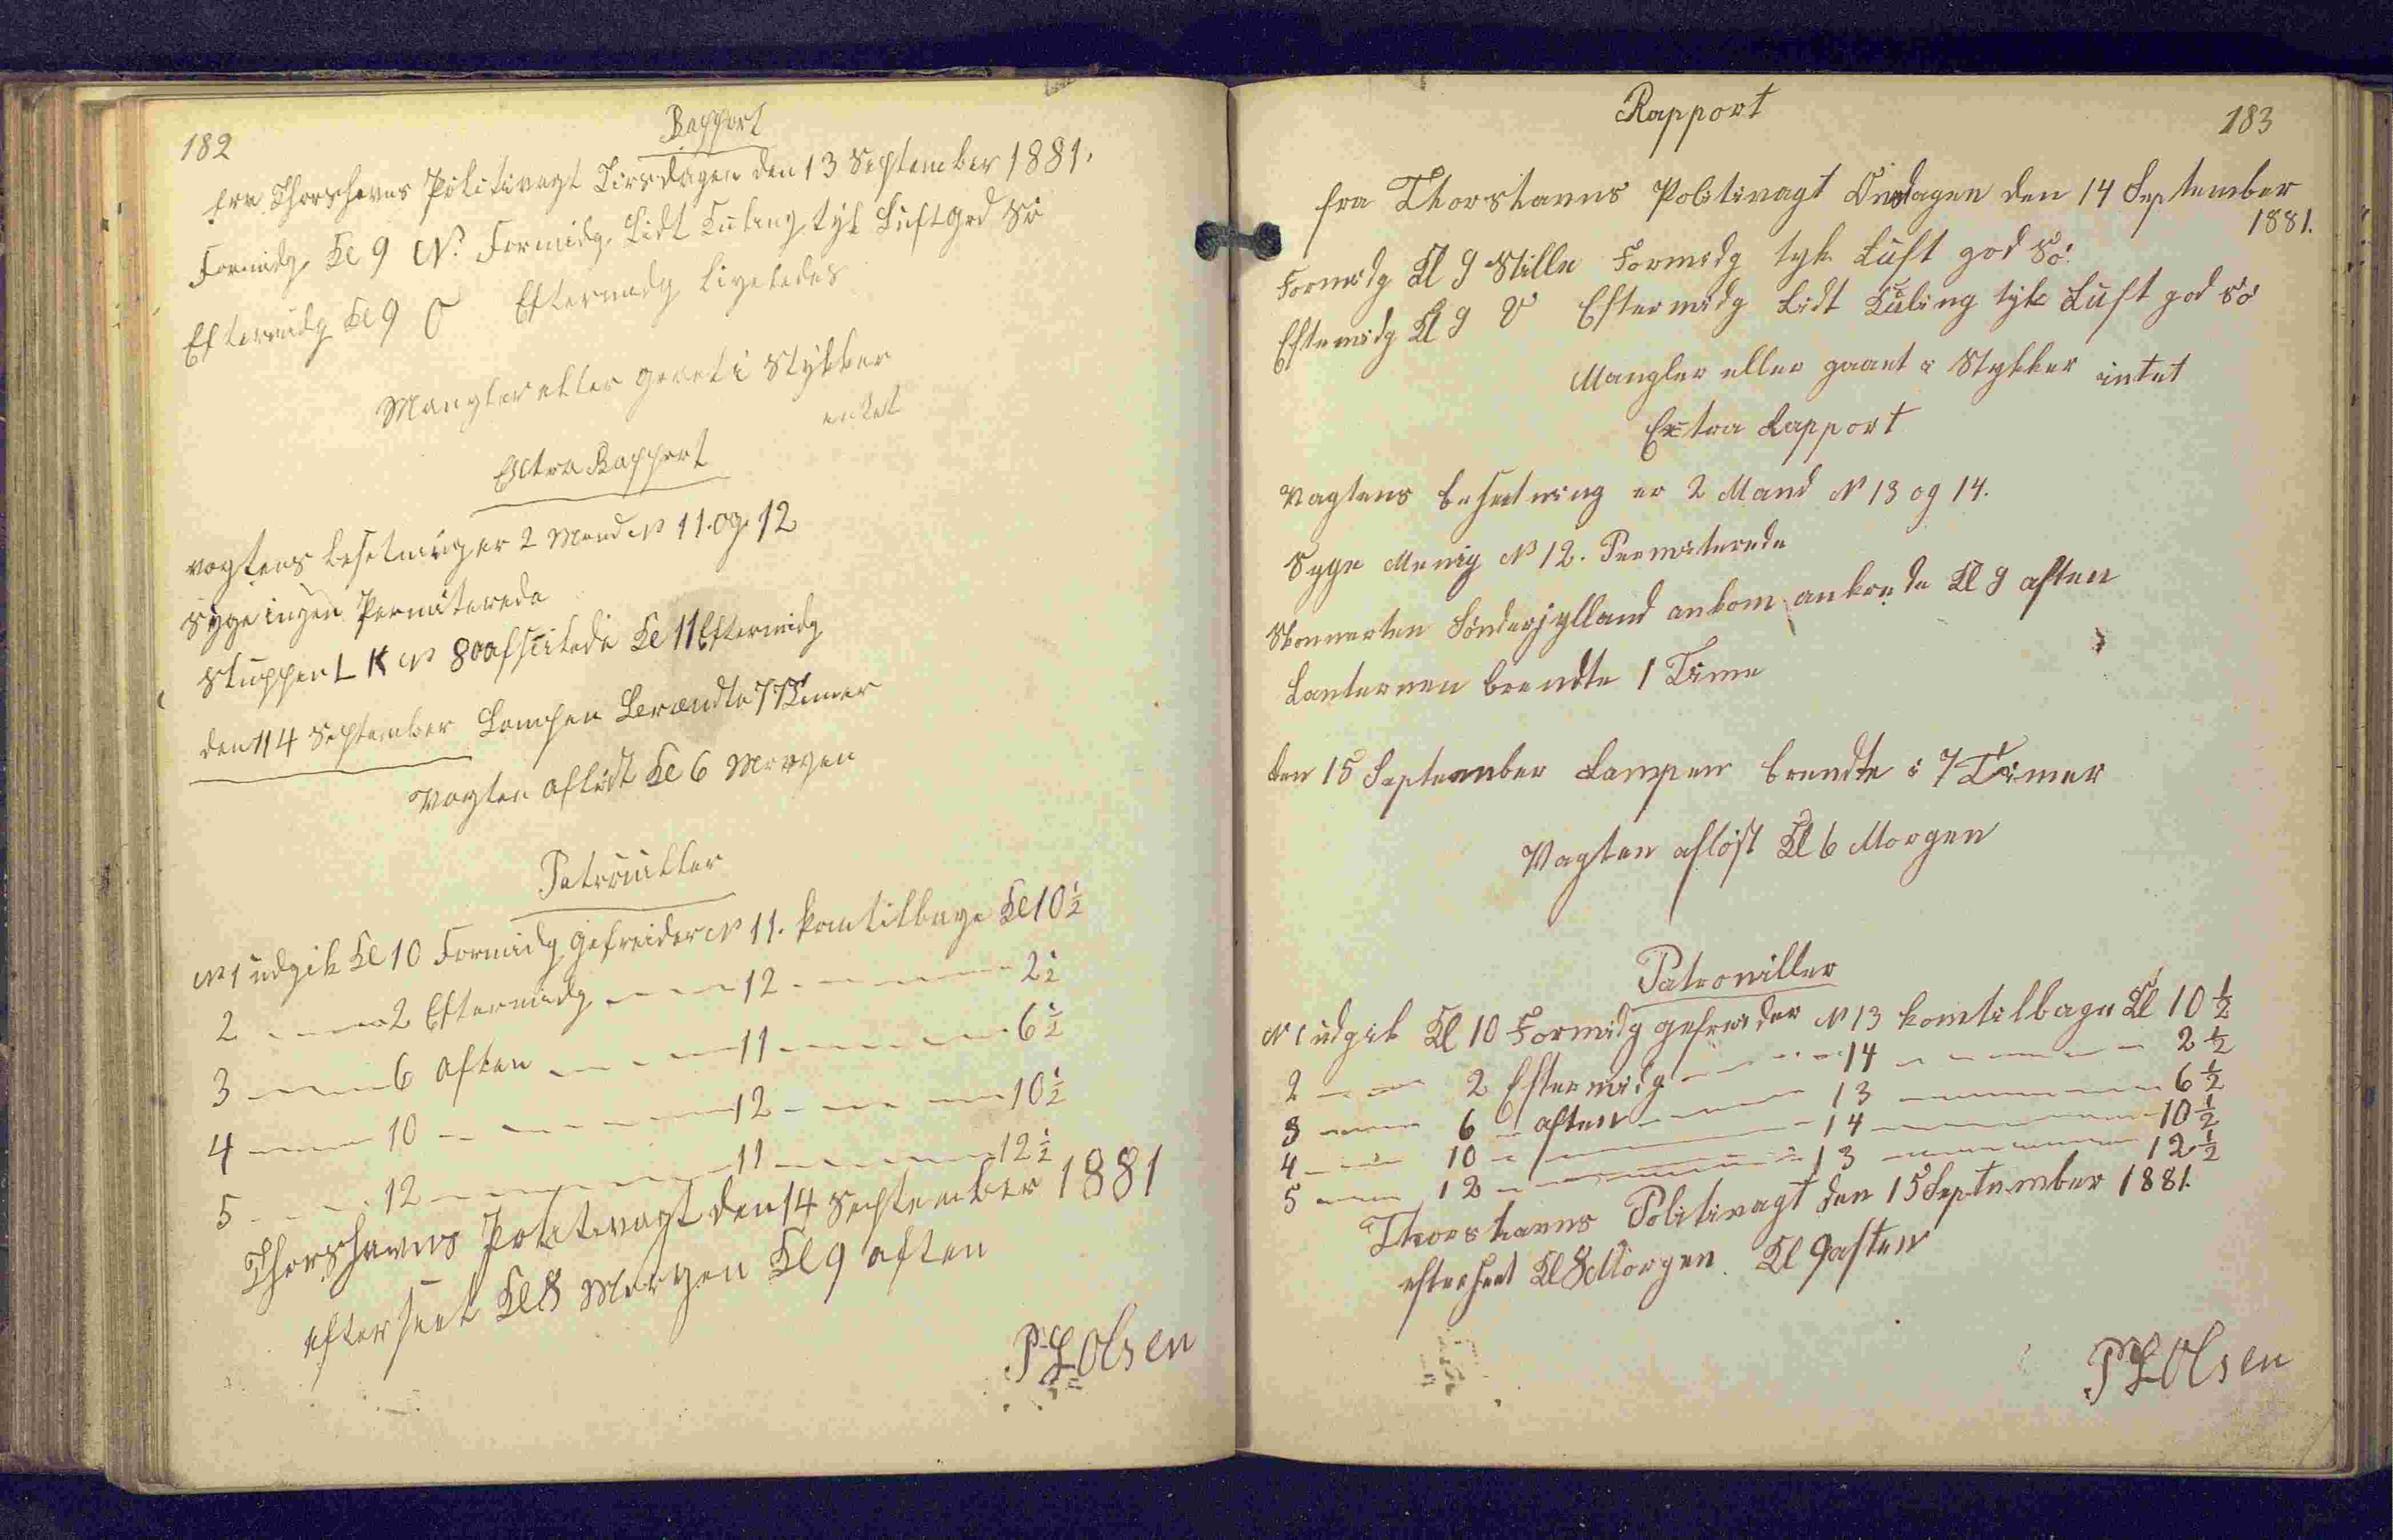 182
Rapport
fra Thorshavns Politivagt Tirsdagen den 13 September 1881.
Formidg Kl 9 N. Formidg. Lidt Kuling tyk Luft god Sö
Eftermidg Kl 9 O Eftermidg ligeledes
Mangler eller gaaet i Stykker
intet
Extra Rapport
vagtens besetning er 2 Mand N 11. og 12
Syge ingen Permiterede
Sluppen L K N 80 afseilede Kl 11 Eftermidg
den 14 September Lampen brændte 7 Timer
Vagten aflöst Kl 6 Morgen
Patrouiller
N 1 udgik Kl 10 Formidg gefreider N 11. kom tilbage Kl 10 ½
2 — — 2 Eftermidg — — — 12 — — — 2 ½
3 — — 6 aften — — — 11 — — — 6 ½
4 — — 10 — — — — 12 — — — 10 ½
5 — — 12 — — — — 11 — — — 12 ½
Thorshavns Politivagt den 14 September 1881
efterseet Kl 8 Morgen Kl 9 aften
P L Olsen
183
Rapport
fra Thorshavns Politivagt Onsdagen den 14 September
1881.
Formidg Kl 9 Stille Formidg tyk Luft god Sö.
Eftemidg Kl 9 V Eftermidg Lidt Kuling tyk Luft god Sö
Mangler eller gaaet i Stykker intet
Extra Rapport
Vagtens besetning er 2 Mand N 13 og 14.
Syge Menig N 12. Permiterede
Skonnerten Sönderjylland ankom ankrede Kl 9 aften
Lanternen brendte 1 Time
den 15 September Lampen brendte i 7 Timer
Vagten aflöst Kl 6 Morgen
Patroniller
N 1 udgik Kl 10 Formidg gefreider N 13 kom tilbage Kl 10 ½
2 — — 2 Eftermidg — — — 14 — — — 2 ½
3 — — 6 — aften — — — 13 — — — 6 ½
4 — — 10 — — — — 14 — — — 10 ½
5 — — 12 — — — — 13 — — — 12 ½
Thorshavns Politivagt den 15 September 1881.
efterseet Kl 8 Morgen. Kl 9 aften
P L Olsen